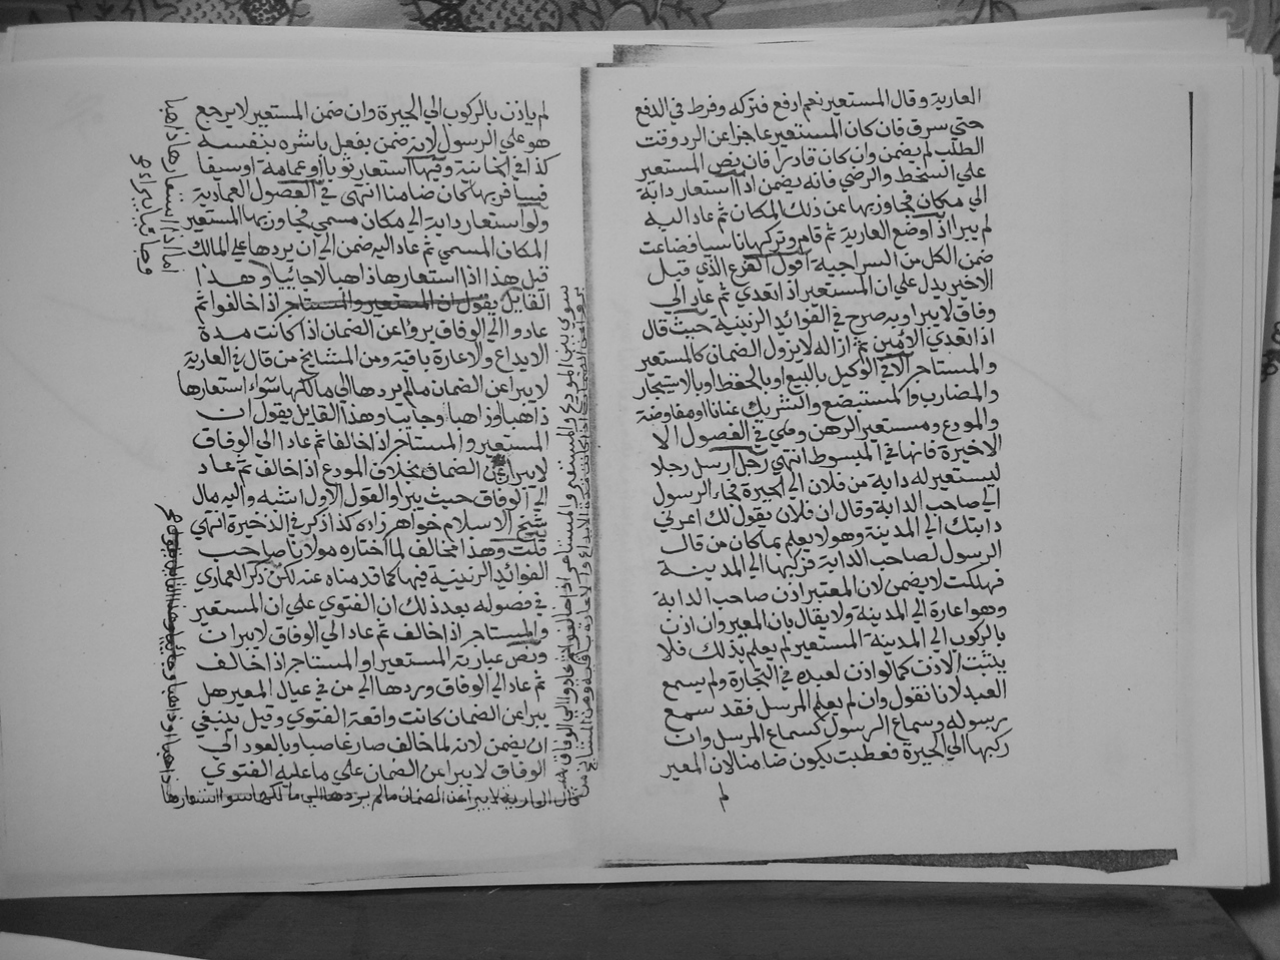 العارية وقال المستعير نعم ادفع فتركه وفرط في الدفع
حتي سرق فان كان المستعير عاجزا عن الرد وقت
الطلب لم يضمن وان كان قادرا فان نص المستعير
علي السخط والرضي فانه يضمن اذا استعار دابة
الي مكان فجاوز بها عن ذلك المكان ثم عاد اليه
لم يبرا اذا وضع العارية ثم قام وتركها ناسيا فضاعت
ضمن الكل من السراجية اقول الفرع الذي قبل
الاخير يدل علي ان المستعير اذا تعدي ثم عاد الي
وفاق لا يبرا وبه صرح في الفوائد الزينية حيث قال
اذا تعدي الامين ثم ازاله لا يزول الضمان كالمستعير
والمستاجر الا في الوكيل بالبيع او بالحفظ او بالاستيجار
والمضارب والمستبضع والشريك عنانا او مفاوضة
والمودع ومستعير الرهن وهي في الفصول الا
الاخيرة فانها في المبسوط انتهي رجل ارسل رجلا
ليستعير له دابة من فلان الي الحيرة فجاء الرسول
الي صاحب الدابة وقال ان فلان يقول لك اعرني
دابتك الي المدينة وهو لا يعلم بما كان من قال
الرسول لصاحب الدابة فركبها الي المدينة
فهلكت لا يضمن لان المعتبر اذن صاحب الدابة
وهو اعارة الي المدينة ولا يقال بان المعير وان اذن
بالركوب الي المدينة المستعير لم يعلم بذلك فلا
يثبت الاذن كما لو اذن لعبده في التجارة ولم يسمع
العبد لانا نقول وان لم يعلم المرسل فقد سمع
برسوله وسماع الرسول كسماع المرسل وان
ركبها الي الحيرة فعطبت يكون ضامنا لان المعير
لم
لم ياذن بالركوب الي الحيرة وان ضمن المستعير لا يرجع
هو علي الرسول لانه ضمن بفعل باشره بنفسه
كذا في الخانية وفيها استعار ثوبا او عمامة او سيفا
فسافر بها كان ضامنا انتهي في الفصول العمادية
ولو استعار دابة الي مكان مسمي فجاوز بها المستعير
المكان المسمي ثم عاد اليه ضمن الي ان يردها علي المالك
قيل هذا اذا استعارها ذاهبا لا جائيا وهذا
القايل يقول ان المستعير والمستاجر اذا خالفوا ثم
عادوا الي الوفاق برواعن الضمان اذا كانت مدة
الايداع والاعارة باقية ومن المشايخ من قال في العارية
لا يبرا عن الضمان مالم يردها الي مالكها سواء استعارها
ذاهبا او ذاهبا وجاييا وهذا القايل يقول ان
المستعير والمستاجر اذا خالفا ثم عادا الي الوفاق
لا يبرا عن الضمان بخلاف المودع اذا خالف ثم عاد
الي الوفاق حيث يبرا والقول الاول اشبه واليه مال
شيخ الاسلام خواهر زاده كذا ذكر في الذخيرة انتهي
قلت وهذا مخالف لما اختاره مولانا صاحب
الفوائد الزينية فيها كما قدمناه عنه لكن ذكر العمادي
في فصوله بعد ذلك ان الفتوي علي ان المستعير
والمستاجر اذا خالف ثم عاد الي الوفاق لا يبرا ن
ونص عبارته المستعير او المستاجر اذا خالف
ثم عاد الي الوفاق وردها الي من في عيال المعير هل
يبرا عن الضمان كانت واقعة الفتوي وقيل ينبغي
ان يضمن لانه لما خالف صار غاصبا وبالعود الي
الوفاق لا يبرا عن الضمان علي ما عليه الفتوي
قال العارية لا يبرا عن الضمان مالم يردها الي مالكها سوا استعارها
اما اذا استعارها ذاهبا
وجاييا يبرا
سوي بين المودع والمستعير والمستاجر اذا خالفوا ثم عادوا الي الوفاق
ذاهبا او ذاهبا وجاييا وهذا القايل يقول